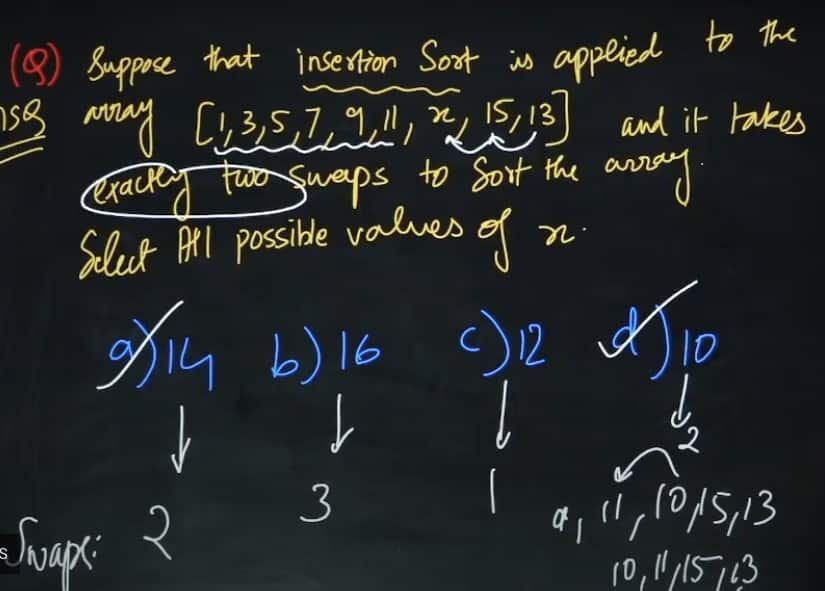 (Q) Suppose that insertion Sort is applied to the
MSQ array [1,3,5,7,9,11, x, 15,13] and it takes
exactly two Swaps to Sort the array.
Select All possible values of x.
a) 14 b) 16 c) 12 d) 10
2
9, 11, 10, 15, 13
Swaps: 2 3 1
10, 11, 15, 13